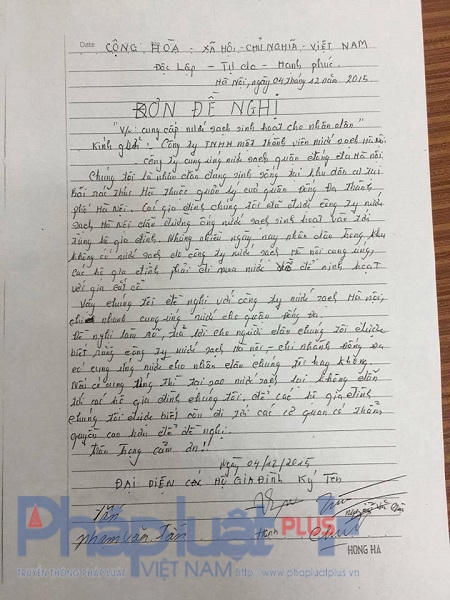 Date CỘNG HÒA - XÃ HỘI - CHỦ NGHĨA - VIỆT NAM
Độc Lập - Tự do - Hạnh phúc.
Hà Nội, ngày 04 tháng 12 năm 2015
ĐƠN ĐỀ NGHỊ
"V/v: cung cấp nước sạch sinh hoạt cho nhân dân"
Kính gửi: - Công ty TNHH một thành viên nước sạch Hà Nội.
Công ty cung ứng nước sạch quận đống đa Hà Nội.
Chúng tôi là nhân dân đang sinh sống tại khu dân cư tại
Bãi rác thuộc quản lý của quận Đống Đa Thành
phố Hà Nội. Các gia đình chúng tôi đã được công ty nước
sạch Hà Nội dẫn đường ống nước sạch sinh hoạt vào tới
từng hộ gia đình. Nhưng nhiều ngày nay nhân dân trong khu
không có nước sạch do công ty nước sạch Hà nội cung ứng,
các hộ gia đình phải đi mua nước để sinh hoạt
với giá cắt cổ.
Vậy chúng tôi đề nghị với công ty nước sạch Hà nội,
nhanh cung ứng nước cho quận Đống Đa.
Đề nghị làm rõ, trả lời cho người dân chúng tôi được
biết rằng công ty nước sạch Hà nội - chi nhánh Đống Đa
có cung ứng nước cho nhân dân chúng tôi hay không.
Nếu có cung ứng thì tại sao nước sạch lại không dẫn
tới các hộ gia đình chúng tôi, để các hộ gia đình
chúng tôi được biết còn đi tới các cơ quan có thẩm
quyền cao hơn để đề nghị.
Trân Trọng cảm ơn!
Ngày 04/12/2015
ĐẠI DIỆN CÁC HỘ GIA ĐÌNH KÝ TÊN
Tấn
Phạm Văn Tấn
Hạnh
Pháp luật PLUS
TRUYỀN THÔNG PHÁP LUẬT VIỆT NAM http://www.phapluatplus.vn
HONG HA